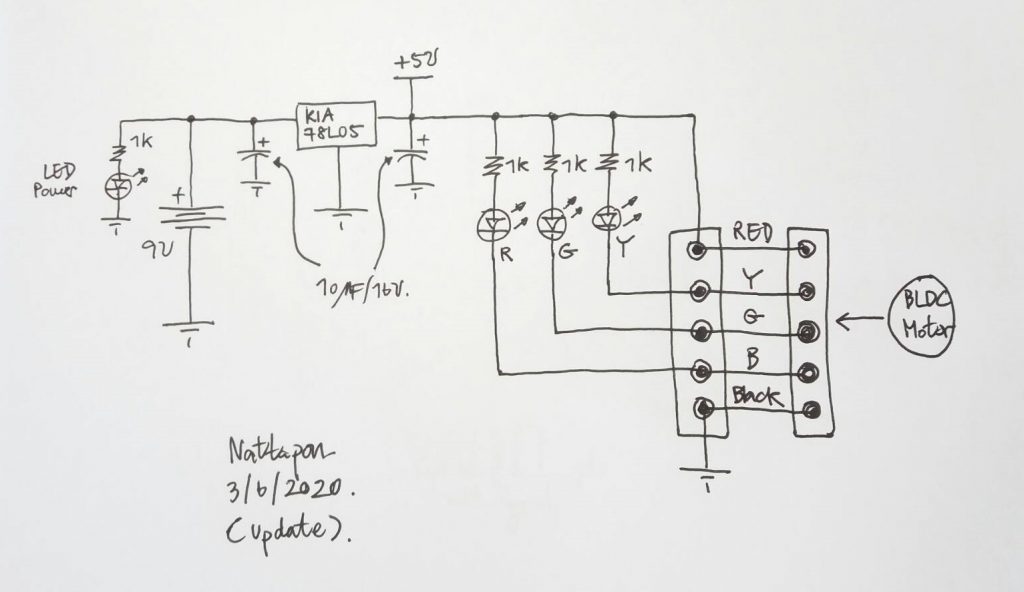 +5V
KIA
78L05
1k
LED
Power
+
+
+
9V
10µF/16V.
1k
1k
1k
R
G
Y
RED
Y
G
B
Black
BLDC
Motor
Nattapon
3/6/2020.
(update).